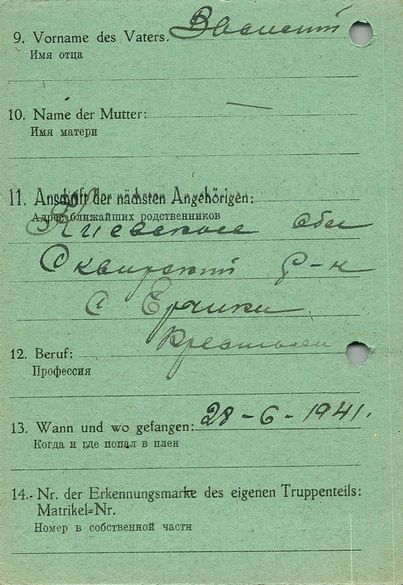 9. Vorname des Vaters. Василий
Имя отца
10. Name der Mutter: —
Имя матери
11. Anschrift der nächsten Angehörigen:
Адрес ближайших родственников
Киевская обл
Сквирский р-н
с Ерчики
12. Beruf:
Профессия
13. Wann und wo gefangen: 28-6-1941.
Когда и где попал в плен
14.- Nr. der Erkennungsmarke des eigenen Truppenteils:
Matrikel=Nr.
Номер в собственной части